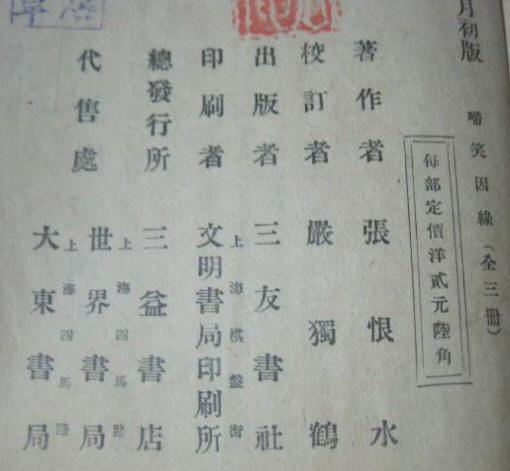 月初版
啼笑因緣(全三冊)
每部定價洋貳元陸角
著作者 張恨水
校訂者 嚴獨鶴
出版者 三友書社
上海棋盤街
印刷者 文明書局印刷所
總發行所 三益書店
上海四馬路
代售處 世界書局
上海四馬路
大東書局